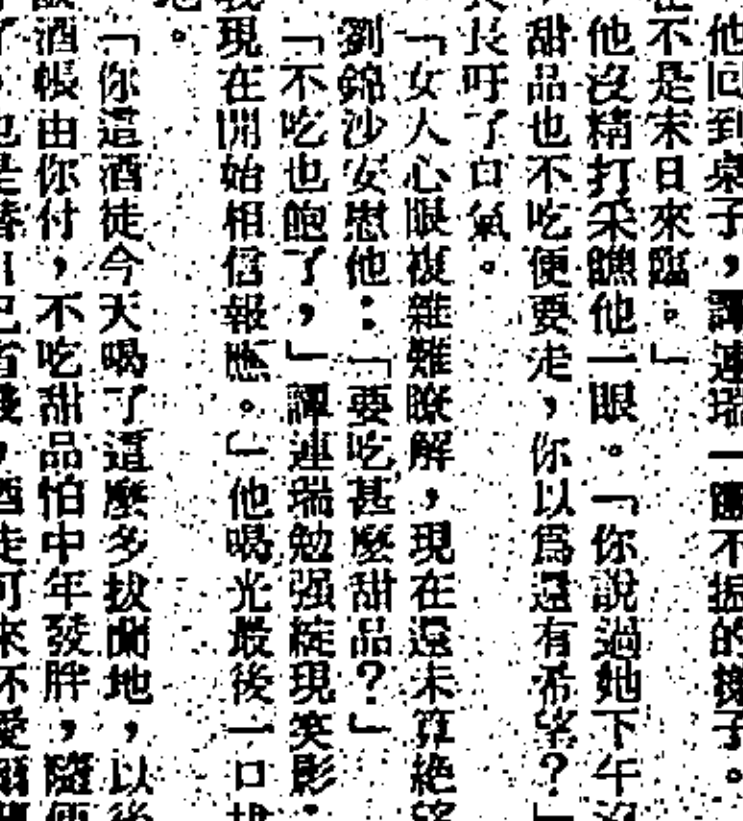 他回到桌子，譚連瑞一蹶不振的樣子。
不是末日來臨。」
他沒精打采瞧他一眼。「你說過她下午沒
甜品也不吃便要走，你以爲還有希望？」
長吁了口氣。
「女人心眼複雜難瞭解，現在還未算絕望
劉錦沙安慰他：「要吃甚麼甜品？」
「不吃也飽了，」譚連瑞勉强綻現笑影：
我現在開始相信報應。」他喝光最後一口
。
「你這酒徒今天喝了這麼多拔蘭地，以後
酒帳由你付，不吃甜品怕中年發胖，隨便
了，也是替自己省錢，酒徒可來杯愛爾